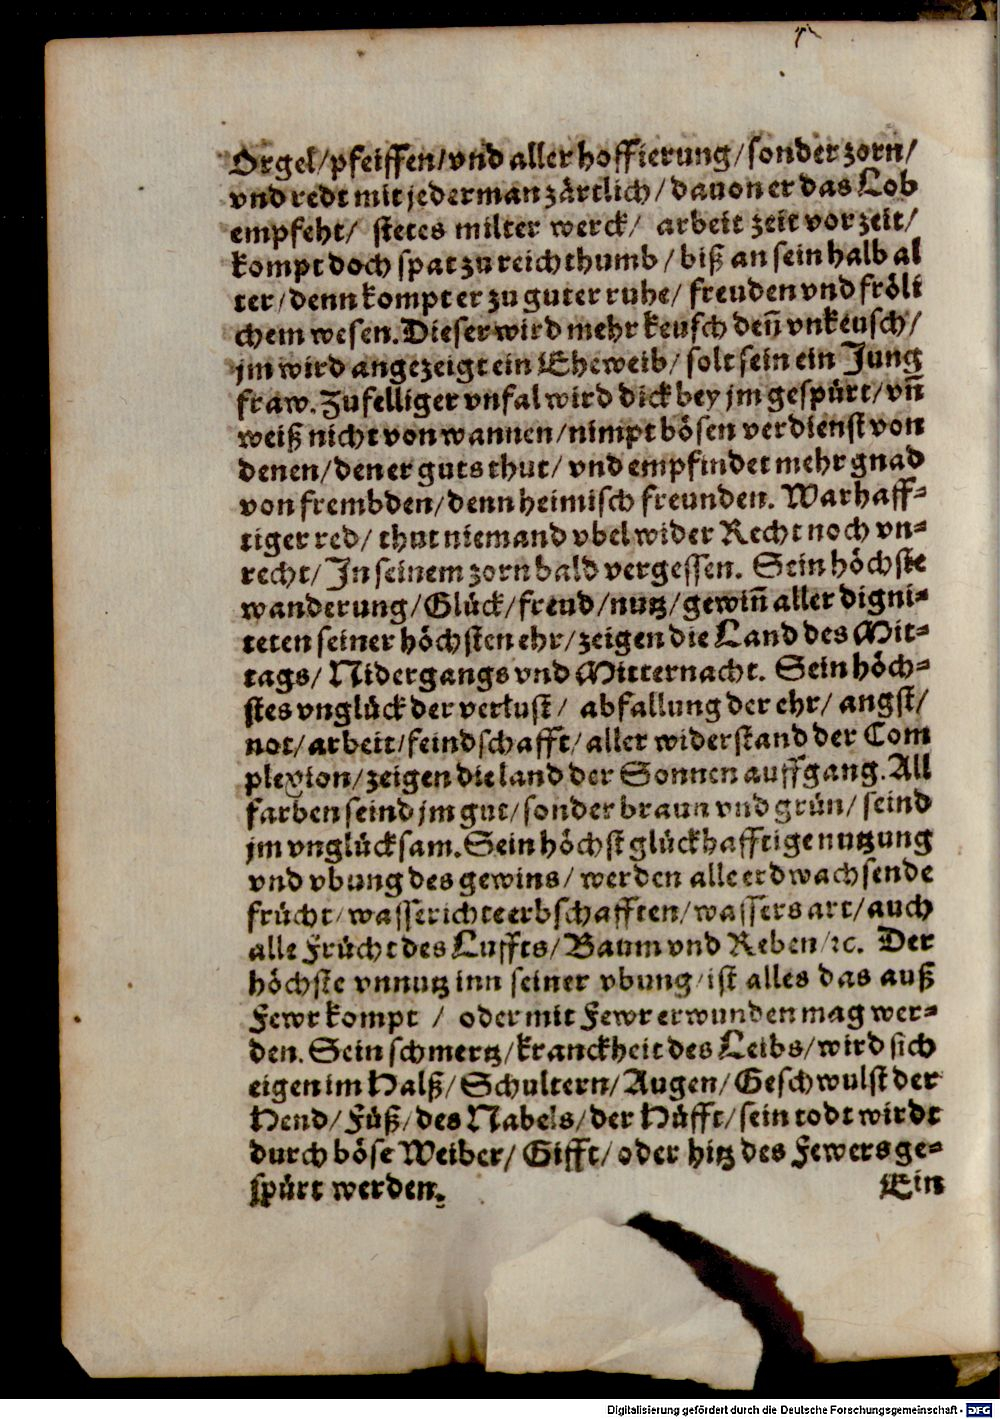 Orgel/pfeiffen/vnd aller hoffierung/sonder zorn/
vnd redt mit jederman zärtlich/dauon er das Lob
empfeht/ stetes milter werck/ arbeit zeit vor zeit/
kompt doch spat zu reichthumb/biß an sein halb al
ter/denn kompt er zu guter ruhe/freuden vnd fröli
chem wesen. Dieser wird mehr keusch deñ vnkeusch/
jm wird angezeigt ein Eheweib/solt sein ein Jung
fraw. Zufelliger vnfal wird dick bey jm gespürt/vñ
weiß nicht von wannen/nimpt bösen verdienst von
denen/den er guts thut/vnd empfindet mehr gnad
von frembden/denn heimisch freunden. Warhaff-
tiger red/ thut niemand vbel wider Recht noch vn-
recht/In seinem zorn bald vergessen. Sein höchste
wanderung/Glück/freud/nutz/gewiñ aller digni-
teten seiner höchsten ehr/zeigen die Land des Mit-
tags/Nidergangs vnd Mitternacht. Sein höch-
stes vnglück der verlust/ abfallung der ehr/ angst/
not/arbeit/feindschafft/aller widerstand der Com
plexion/zeigen die land der Sonnen auffgang. All
farben seind jm gut/sonder braun vnd grün/ seind
jm vnglücksam. Sein höchst glückhafftige nutzung
vnd vbung des gewins/ werden alle erdwachsende
frücht/wasserichte erbschafften/wassers art/auch
alle Frücht des Luffts/Baum vnd Reben/ꝛc. Der
höchste vnnutz inn seiner vbung/ist alles das auß
Fewr kompt / oder mit Fewr erwunden mag wer-
den. Sein schmertz/kranckheit des Leibs/wird sich
eigen im Halß/Schultern/Augen/Geschwulst der
Hend/Füß/des Nabels/der Hüfft/sein todt wirdt
durch böse Weiber/Gifft/oder hitz des Fewers ge-
spürt werden.
Ein
Digitalisierung gefördert durch die Deutsche Forschungsgemeinschaft - DFG